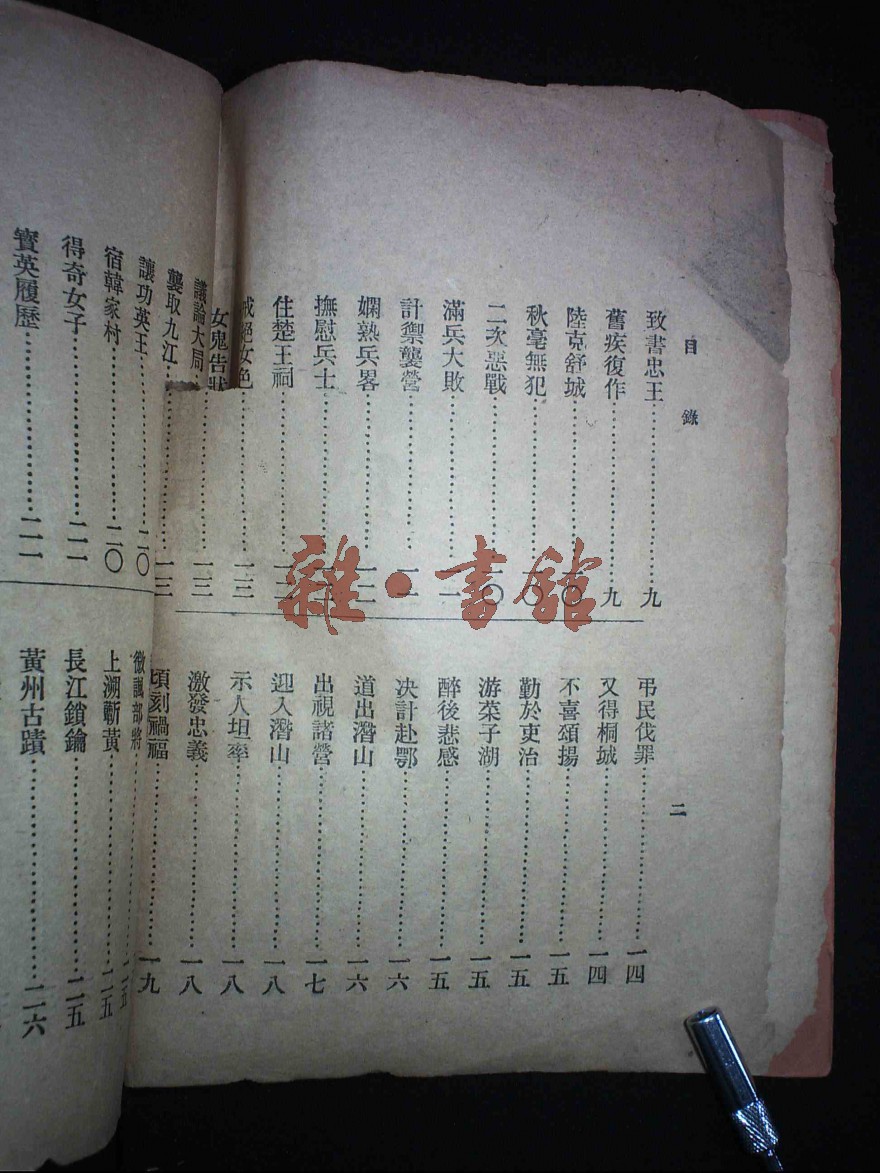 目錄 二
致書忠王……九
舊疾復作……九
陸克舒城……一〇
秋毫無犯……一〇
二次惡戰……一〇
滿兵大敗……一一
計禦襲營……一一
嫻熟兵畧……一二
撫慰兵士……一二
住楚王祠……一二
戒絕女色……一三
女鬼告狀……一三
一三
弔民伐罪……一四
又得桐城……一四
不喜頌揚……一五
勤於吏治……一五
游菜子湖……一五
醉後悲感……一五
決計赴鄂……一六
道出潛山……一六
出視諸營……一七
迎入潛山……一八
示人坦率……一八
激發忠義……一八
頃刻禍福……一九
議論大局
襲取九江
讓功英王……二〇
宿韓家村……二〇
得奇女子……二一
寶英履歷……二一
微諷部將……二五
上溯蘄黃……二五
長江鎖鑰……二五
黃州古蹟……二六
雜·書館